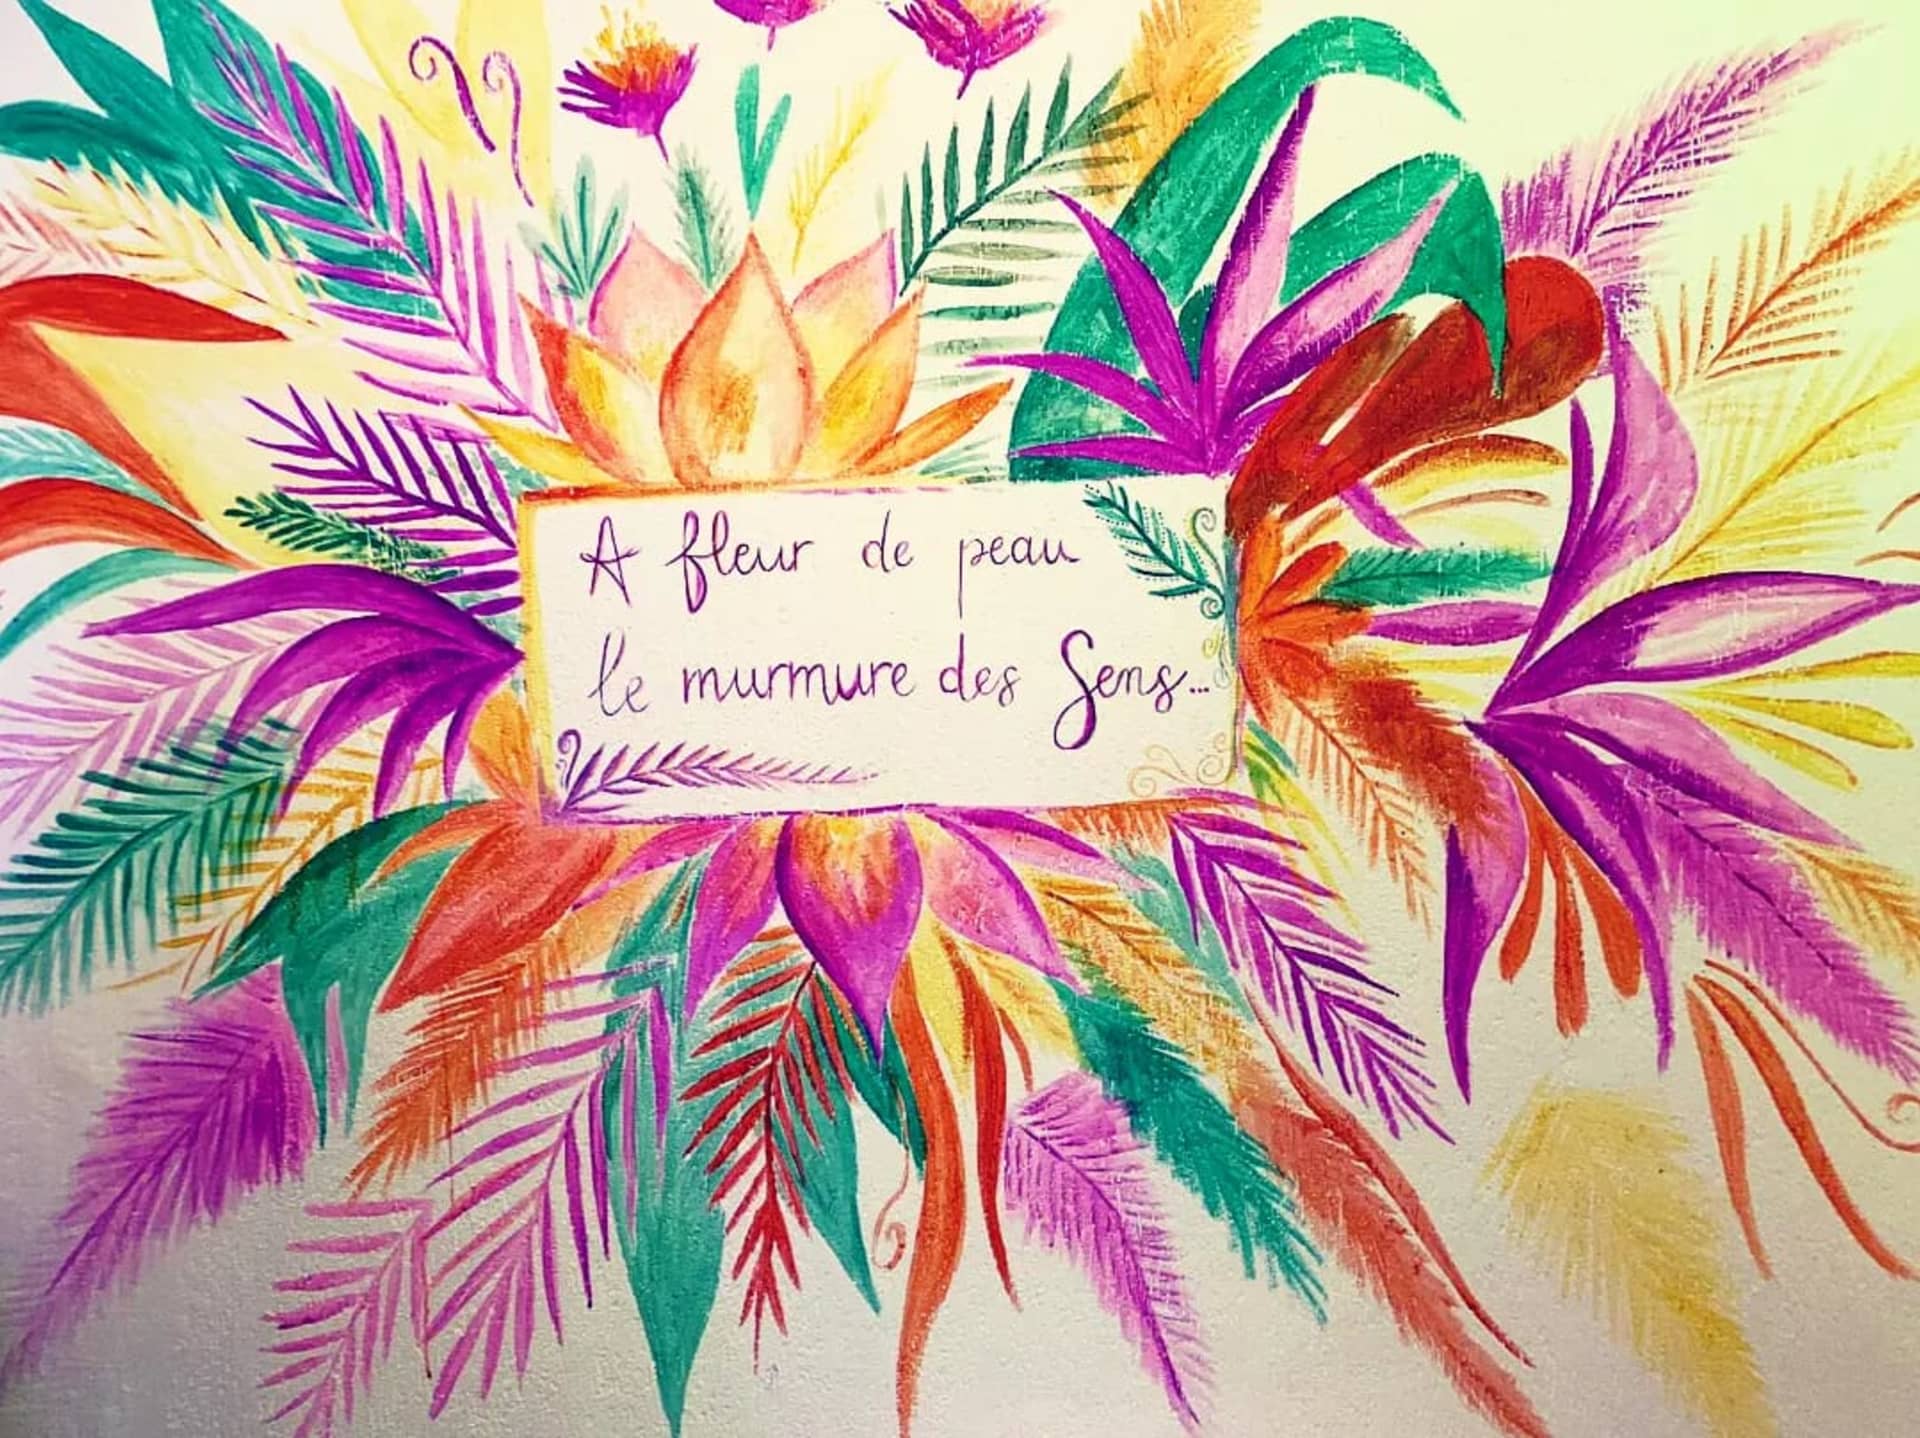 A fleur de peau
le murmure des Sens...